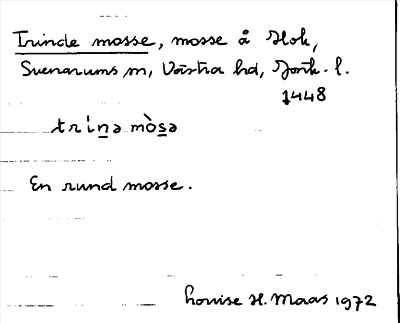 Trinde mosse, mosse å Hok,
Svenarums sn, Västra hd, Jönk. l.
1448
trìn̲ə mòs̲ə
En rund mosse.
Louise H. Maas 1972